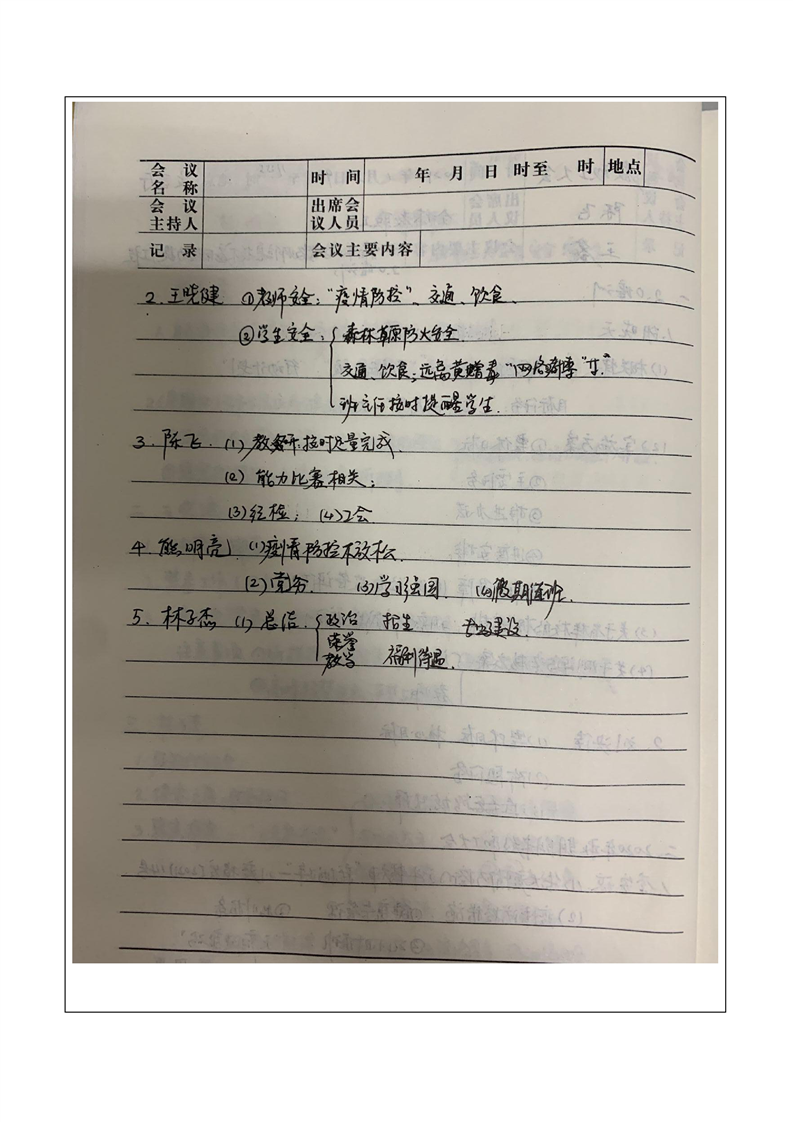 会 议 名 称 时 间 年 月 日 时至 时 地点
会 议 主持人 出席会议人员
记 录 会议主要内容
2. 王晓健 ①老师安全:"疫情防控"、交通、饮食、
②学生安全: 森林草原防火安全
交通、饮食;远离黄赌毒"网络赌博"
班主任按时提醒学生.
3. 陈飞. (1) 教案本:按时足量完成
(2) 能力比赛相关;
(3) 经检; (4) 工会
4. 熊明亮 (1) 疫情防控不放松
(2) 党务. (3) 学习强国. (4) 假期值班.
5. 林子杰 (1) 总结. 政治 招生 建设.
荣誉
教学 福利待遇.